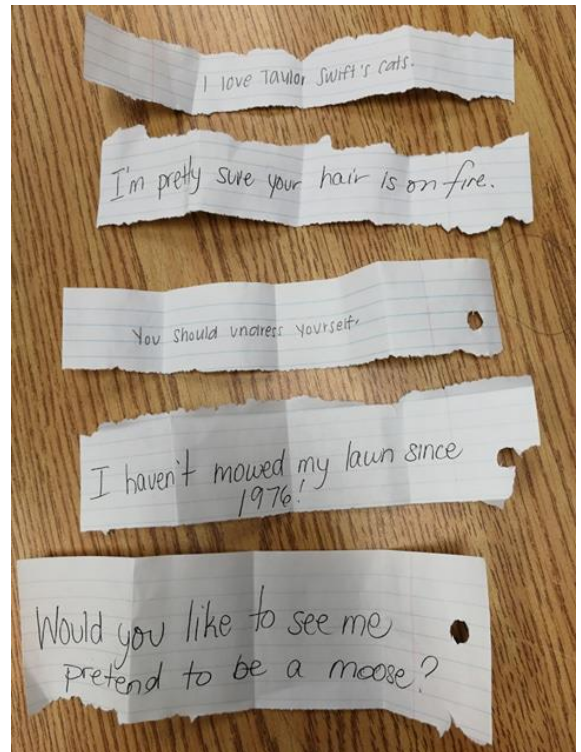 I love Taylor Swift's cats.
I'm pretty sure your hair is on fire.
You should undress yourself.
I haven't mowed my lawn since
1976!
Would you like to see me
pretend to be a moose?